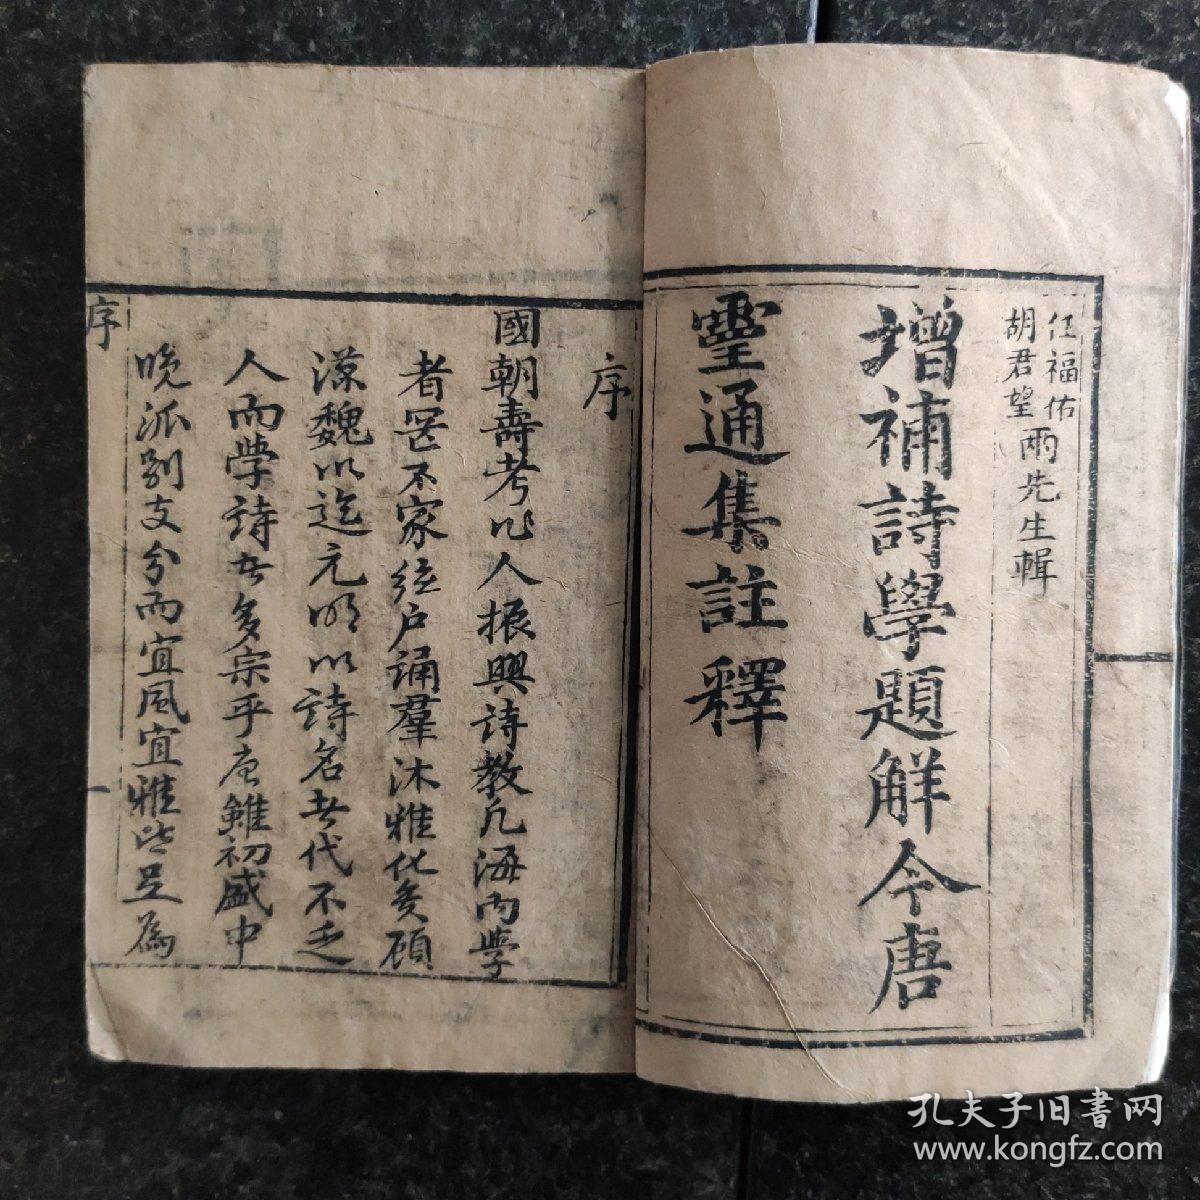 任福佑
胡君望
兩先生輯
增補詩學題解今唐
靈通集註釋
序
國朝壽考作人振興詩教凡海內學
者罔不家絃户誦羣沐雅化矣顧
漢魏以迄元明以詩名者代不乏
人而學詩者多宗乎唐雖初盛中
晚派别支分而宜風宜雅皆足為
序
一
孔夫子旧書网
www.kongfz.com